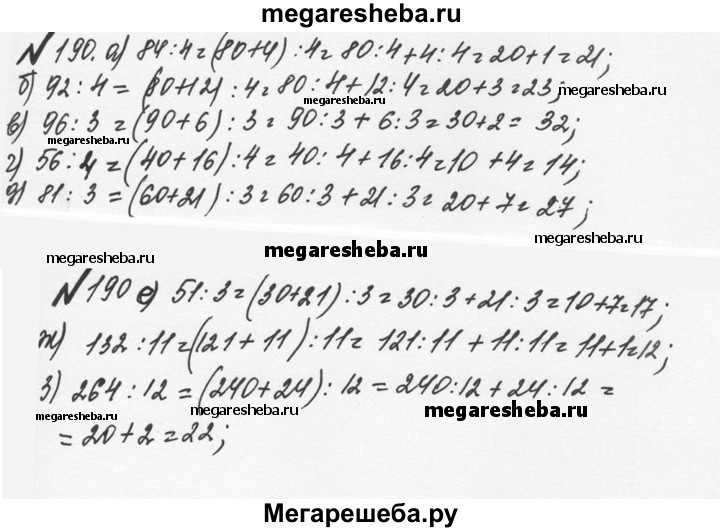 megaresheba.ru
№ 190. а) 84 : 4 = (80+4) : 4 = 80 : 4 + 4 : 4 = 20 + 1 = 21;
б) 92 : 4 = (80+12) : 4 = 80 : 4 + 12 : 4 = 20 + 3 = 23;
megaresheba.ru
megaresheba.ru
в) 96 : 3 = (90+6) : 3 = 90 : 3 + 6 : 3 = 30 + 2 = 32;
megaresheba.ru
г) 56 : 4 = (40+16) : 4 = 40 : 4 + 16 : 4 = 10 + 4 = 14;
д) 81 : 3 = (60+21) : 3 = 60 : 3 + 21 : 3 = 20 + 7 = 27;
megaresheba.ru
megaresheba.ru
megaresheba.ru
№ 190 е) 51 : 3 = (30+21) : 3 = 30 : 3 + 21 : 3 = 10 + 7 = 17;
ж) 132 : 11 = (121 + 11) : 11 = 121 : 11 + 11 : 11 = 11 + 1 = 12;
з) 264 : 12 = (240+24) : 12 = 240 : 12 + 24 : 12 =
megaresheba.ru
megaresheba.ru
= 20 + 2 = 22;
megaresheba.ru
Мегарешеба.ру